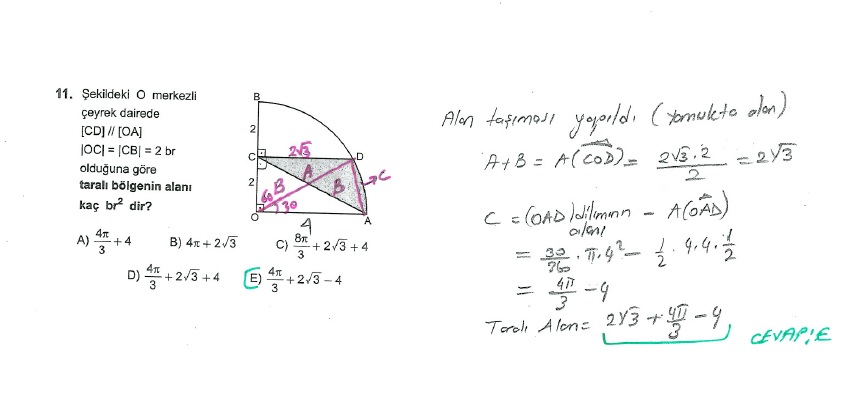 11. Şekildeki O merkezli
çeyrek dairede
[CD] // [OA]
|OC| = |CB| = 2 br
olduğuna göre
taralı bölgenin alanı
kaç br² dir?
B
2
C
2√3
D
2
B
A
B
C
60
30
O
4
A
A) 4π/3 + 4
B) 4π + 2√3
C) 8π/3 + 2√3 + 4
D) 4π/3 + 2√3 + 4
E) 4π/3 + 2√3 − 4
Alan taşıması yapıldı (yamukta alan)
A+B = A(COD) = 2√3.2/2 = 2√3
C = (OAD) diliminin alanı − A(OAD)
= 30/360 . π.4² − 1/2 . 4.4. 1/2
= 4π/3 − 4
Taralı Alan = 2√3 + 4π/3 − 4
CEVAP: E